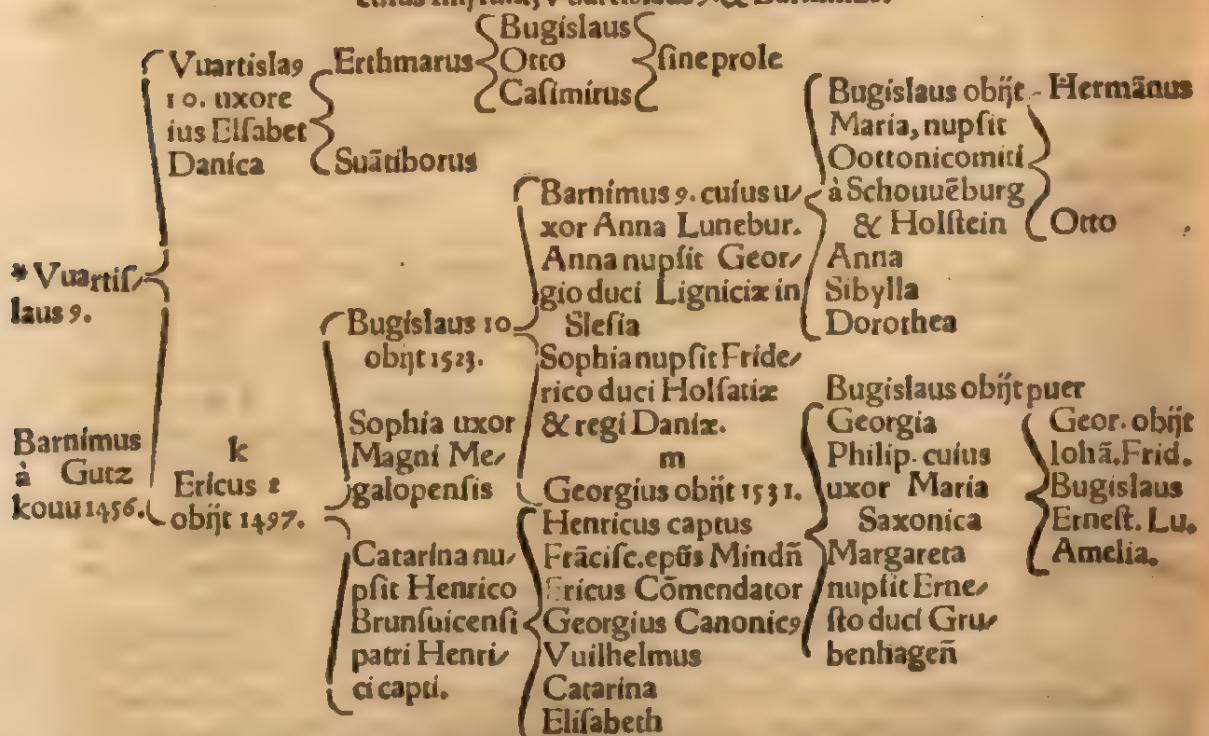 Bugislaus
Otto
Casimirus
sine prole
Vuartisla9
10. uxore
ius Elsabet
Danica
Erthmarus
Suātiborus
*Vuartis⸗
laus 9.
Barnimus
à Gutz
kouu 1456.
k
Ericus 2
obijt 1497.
Bugislaus 10
obijt 1523.
Sophia uxor
Magni Me⸗
galopensis
Catarina nu⸗
psit Henrico
Brunsuicensi
patri Henri⸗
ci capti.
Barnimus 9. cuius u⸗
xor Anna Lunebur.
Anna nupsit Geor⸗
gio duci Ligniciæ in
Slesia
Sophia nupsit Fride⸗
rico duci Holsatiæ
& regi Daniæ.
m
Georgius obijt 1531.
Henricus captus
Frācisc. epūs Mindñ
Ericus Cōmendator
Georgius Canonic9
Vuilhelmus
Catarina
Elisabeth
Bugislaus obijt
Maria, nupsit
Oottonicomiti
à Schouuēburg
& Holstein
Anna
Sibylla
Dorothea
Hermānus
Otto
Bugislaus obijt puer
Georgia
Philip. cuius
uxor Maria
Saxonica
Margareta
nupsit Erne⸗
sto duci Gru⸗
benhageñ
Geor. obijt
Iohā. Frid.
Bugislaus
Ernest. Lu.
Amelia.